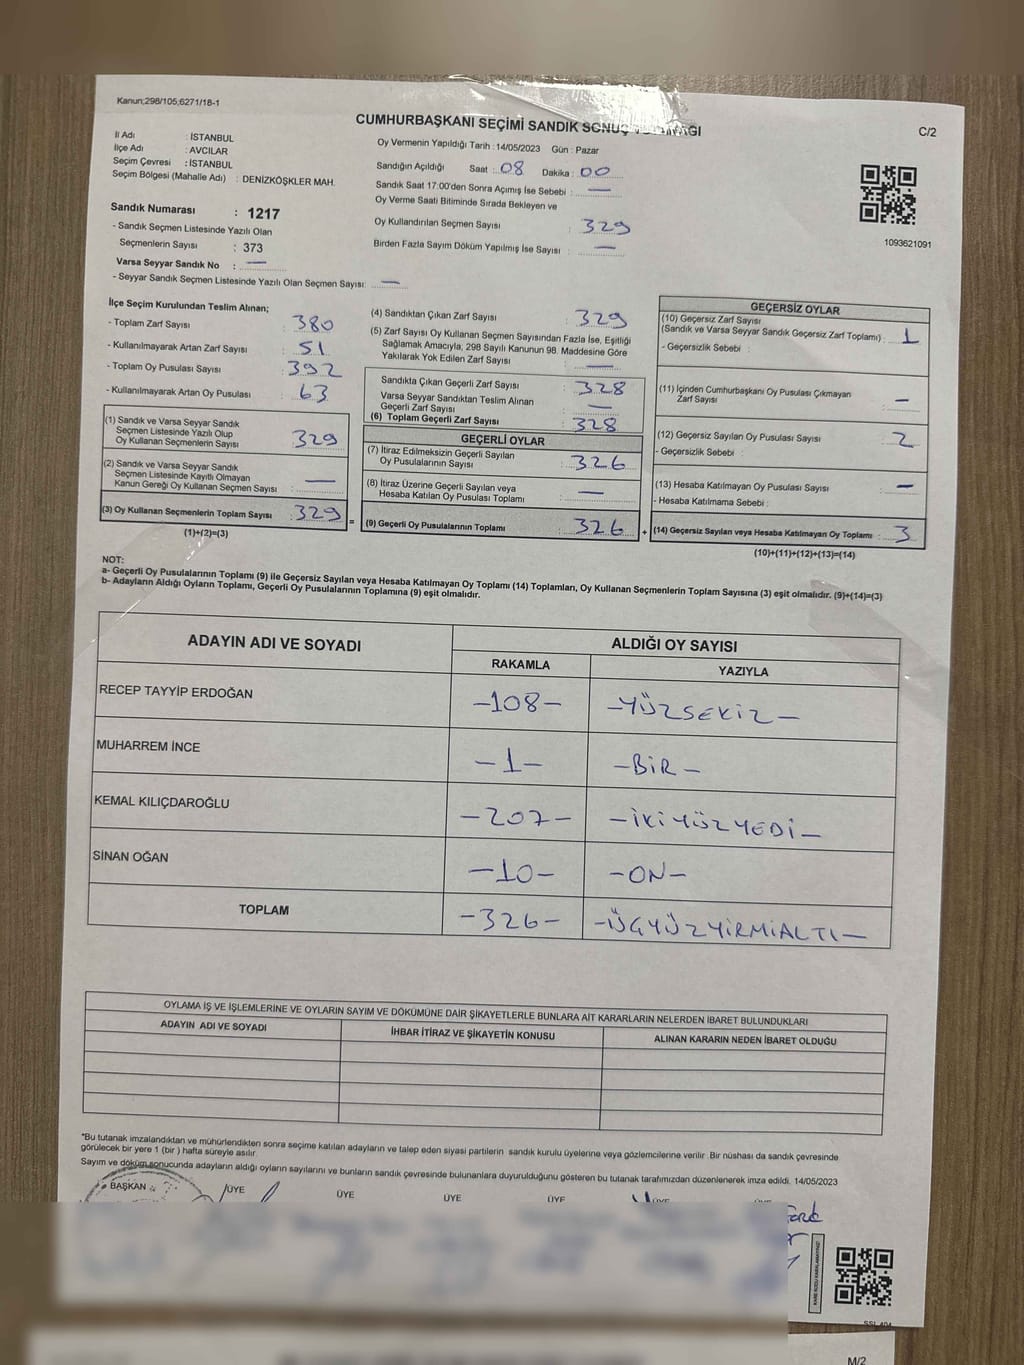 Kanun;298/105;6271/18-1
CUMHURBAŞKANI SEÇİMİ SANDIK SONUÇ
C/2
İl Adı : İSTANBUL
İlçe Adı : AVCILAR
Seçim Çevresi : İSTANBUL
Seçim Bölgesi (Mahalle Adı) : DENİZKÖŞKLER MAH.
Oy Vermenin Yapıldığı Tarih : 14/05/2023 Gün : Pazar
Sandığın Açıldığı Saat : 08 Dakika : 00
Sandık Saat 17:00'den Sonra Açımış İse Sebebi : —
Oy Verme Saati Bitiminde Sırada Bekleyen ve
Oy Kullandırılan Seçmen Sayısı : 329
Birden Fazla Sayım Döküm Yapılmış İse Sayısı : —
1093621091
Sandık Numarası : 1217
- Sandık Seçmen Listesinde Yazılı Olan
Seçmenlerin Sayısı : 373
Varsa Seyyar Sandık No : —
- Seyyar Sandık Seçmen Listesinde Yazılı Olan Seçmen Sayısı: —
İlçe Seçim Kurulundan Teslim Alınan;
- Toplam Zarf Sayısı : 380
- Kullanılmayarak Artan Zarf Sayısı : 51
- Toplam Oy Pusulası Sayısı : 392
- Kullanılmayarak Artan Oy Pusulası : 63
(1) Sandık ve Varsa Seyyar Sandık
Seçmen Listesinde Yazılı Olup
Oy Kullanan Seçmenlerin Sayısı : 329
(2) Sandık ve Varsa Seyyar Sandık
Seçmen Listesinde Kayıtlı Olmayan
Kanun Gereği Oy Kullanan Seçmen Sayısı : —
(3) Oy Kullanan Seçmenlerin Toplam Sayısı : 329
(1)+(2)=(3)
(4) Sandıktan Çıkan Zarf Sayısı : 329
(5) Zarf Sayısı Oy Kullanan Seçmen Sayısından Fazla İse, Eşitliği
Sağlamak Amacıyla, 298 Sayılı Kanunun 98. Maddesine Göre
Yakılarak Yok Edilen Zarf Sayısı : —
Sandıkta Çıkan Geçerli Zarf Sayısı : 328
Varsa Seyyar Sandıktan Teslim Alınan
Geçerli Zarf Sayısı : —
(6) Toplam Geçerli Zarf Sayısı : 328
GEÇERLİ OYLAR
(7) İtiraz Edilmeksizin Geçerli Sayılan
Oy Pusulalarının Sayısı : 326
(8) İtiraz Üzerine Geçerli Sayılan veya
Hesaba Katılan Oy Pusulası Toplamı : —
= (9) Geçerli Oy Pusulalarının Toplamı : 326
GEÇERSİZ OYLAR
(10) Geçersiz Zarf Sayısı
(Sandık ve Varsa Seyyar Sandık Geçersiz Zarf Toplamı) : 1
- Geçersizlik Sebebi :
(11) İçinden Cumhurbaşkanı Oy Pusulası Çıkmayan
Zarf Sayısı : —
(12) Geçersiz Sayılan Oy Pusulası Sayısı : 2
- Geçersizlik Sebebi :
(13) Hesaba Katılmayan Oy Pusulası Sayısı : —
- Hesaba Katılmama Sebebi :
+ (14) Geçersiz Sayılan veya Hesaba Katılmayan Oy Toplamı : 3
(10)+(11)+(12)+(13)=(14)
NOT:
a- Geçerli Oy Pusulalarının Toplamı (9) ile Geçersiz Sayılan veya Hesaba Katılmayan Oy Toplamı (14) Toplamları, Oy Kullanan Seçmenlerin Toplam Sayısına (3) eşit olmalıdır. (9)+(14)=(3)
b- Adayların Aldığı Oyların Toplamı, Geçerli Oy Pusulalarının Toplamına (9) eşit olmalıdır.
ADAYIN ADI VE SOYADI
ALDIĞI OY SAYISI
RAKAMLA
YAZIYLA
RECEP TAYYİP ERDOĞAN -108- -YÜZSEKİZ-
MUHARREM İNCE -1- -BİR-
KEMAL KILIÇDAROĞLU -207- -İKİYÜZYEDİ-
SİNAN OĞAN -10- -ON-
TOPLAM -326- -ÜÇYÜZYİRMİALTI-
OYLAMA İŞ VE İŞLEMLERİNE VE OYLARIN SAYIM VE DÖKÜMÜNE DAİR ŞİKAYETLERLE BUNLARA AİT KARARLARIN NELERDEN İBARET BULUNDUKLARI
ADAYIN ADI VE SOYADI
İHBAR İTİRAZ VE ŞİKAYETİN KONUSU
ALINAN KARARIN NEDEN İBARET OLDUĞU
*Bu tutanak imzalandıktan ve mühürlendikten sonra seçime katılan adayların ve talep eden siyasi partilerin sandık kurulu üyelerine veya gözlemcilerine verilir. Bir nüshası da sandık çevresinde
görülecek bir yere 1 (bir ) hafta süreyle asılır.
Sayım ve döküm sonucunda adayların aldığı oyların sayılarını ve bunların sandık çevresinde bulunanlara duyurulduğunu gösteren bu tutanak tarafımızdan düzenlenerek imza edildi. 14/05/2023
BAŞKAN ÜYE ÜYE ÜYE ÜYE ÜYE ÜYE
M/2